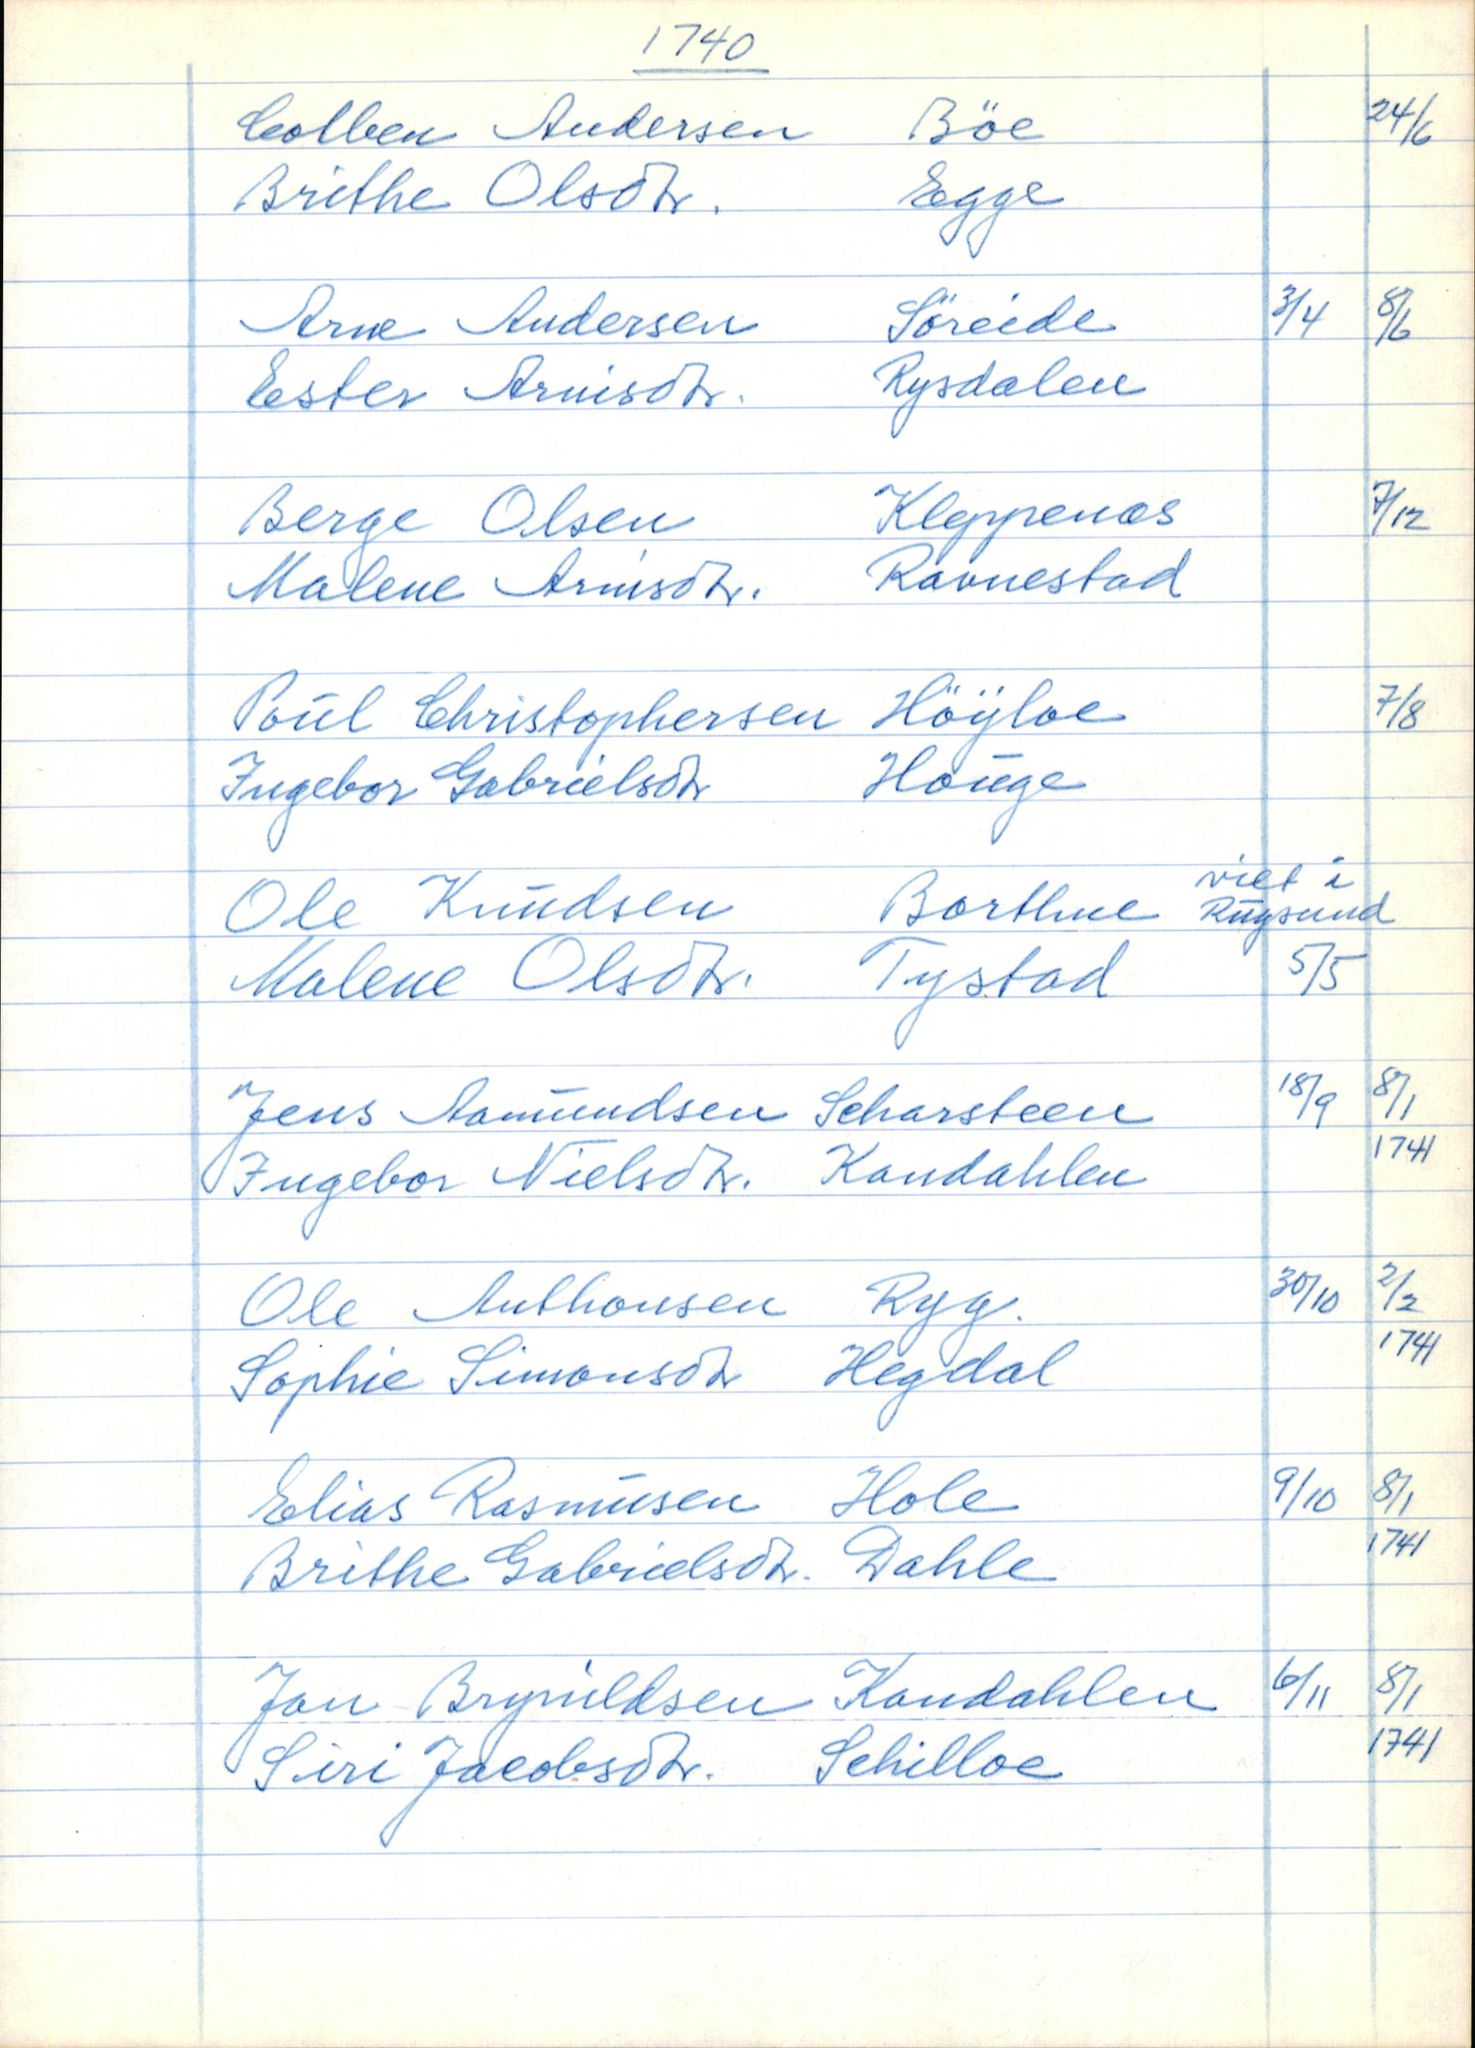 1740
Colben Andersen Böe 24/6
Brithe Olsdtr. Egge
Arne Andersen Söreide 3/4 8/6
Ester Arnisdtr. Rysdalen
Berge Olsen Kleppenæs 7/12
Malene Arnisdtr. Ravnestad
Poul Christophersen Höÿloe 7/8
Ingebor Gabrielsdtr Houge
Ole Knudsen Borthne viet i Rugsund
Malene Olsdtr. Tystad 5/5
Jens Aamundsen Scharsteen 18/9 8/1
Ingebor Nielsdtr. Kandahlen 1741
Ole Anthonsen Ryg. 30/10 2/2
Sophie Simonsdtr Hegdal 1741
Elias Rasmusen Hole 9/10 8/1
Brithe Gabrielsdtr. Dahle 1741
Jon Brynildsen Kandahlen 6/11 8/1
Siri Jacobsdtr. Schilloe 1741